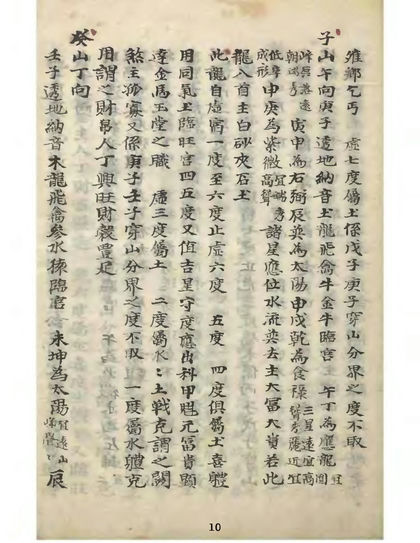 雅鄉乞丐 虛七度屬土係戊子庚子穿山分界之度不取
子山午向庚子透地納音土龍飛禽牛金牛臨官 午丁為應龍宜
峰巒高遠 寅甲為右弼辰巽為太陽申戌乾為食祿 三星遠宜高
低 申庚為紫微 高聳 諸星應位水流巽去主大富大貴若此
龍入首主白砂夾石土
此龍自虛宿一度至六度止虛六度 五度 四度俱屬土喜軆
用同氣土臨旺宮四五度又值吉星守度應出科甲魁元富貴顯
達金馬玉堂之職 虛三度屬土 二度屬水水土戰克謂之鬪
煞主鰥寡又係庚子壬子穿山分界之度不取 一度屬水軆克
用謂之財帛人丁興旺財穀豐足
癸山丁向
壬子透地納音木龍飛禽參水猿臨官 未坤為太陽 宜遠山 辰
10